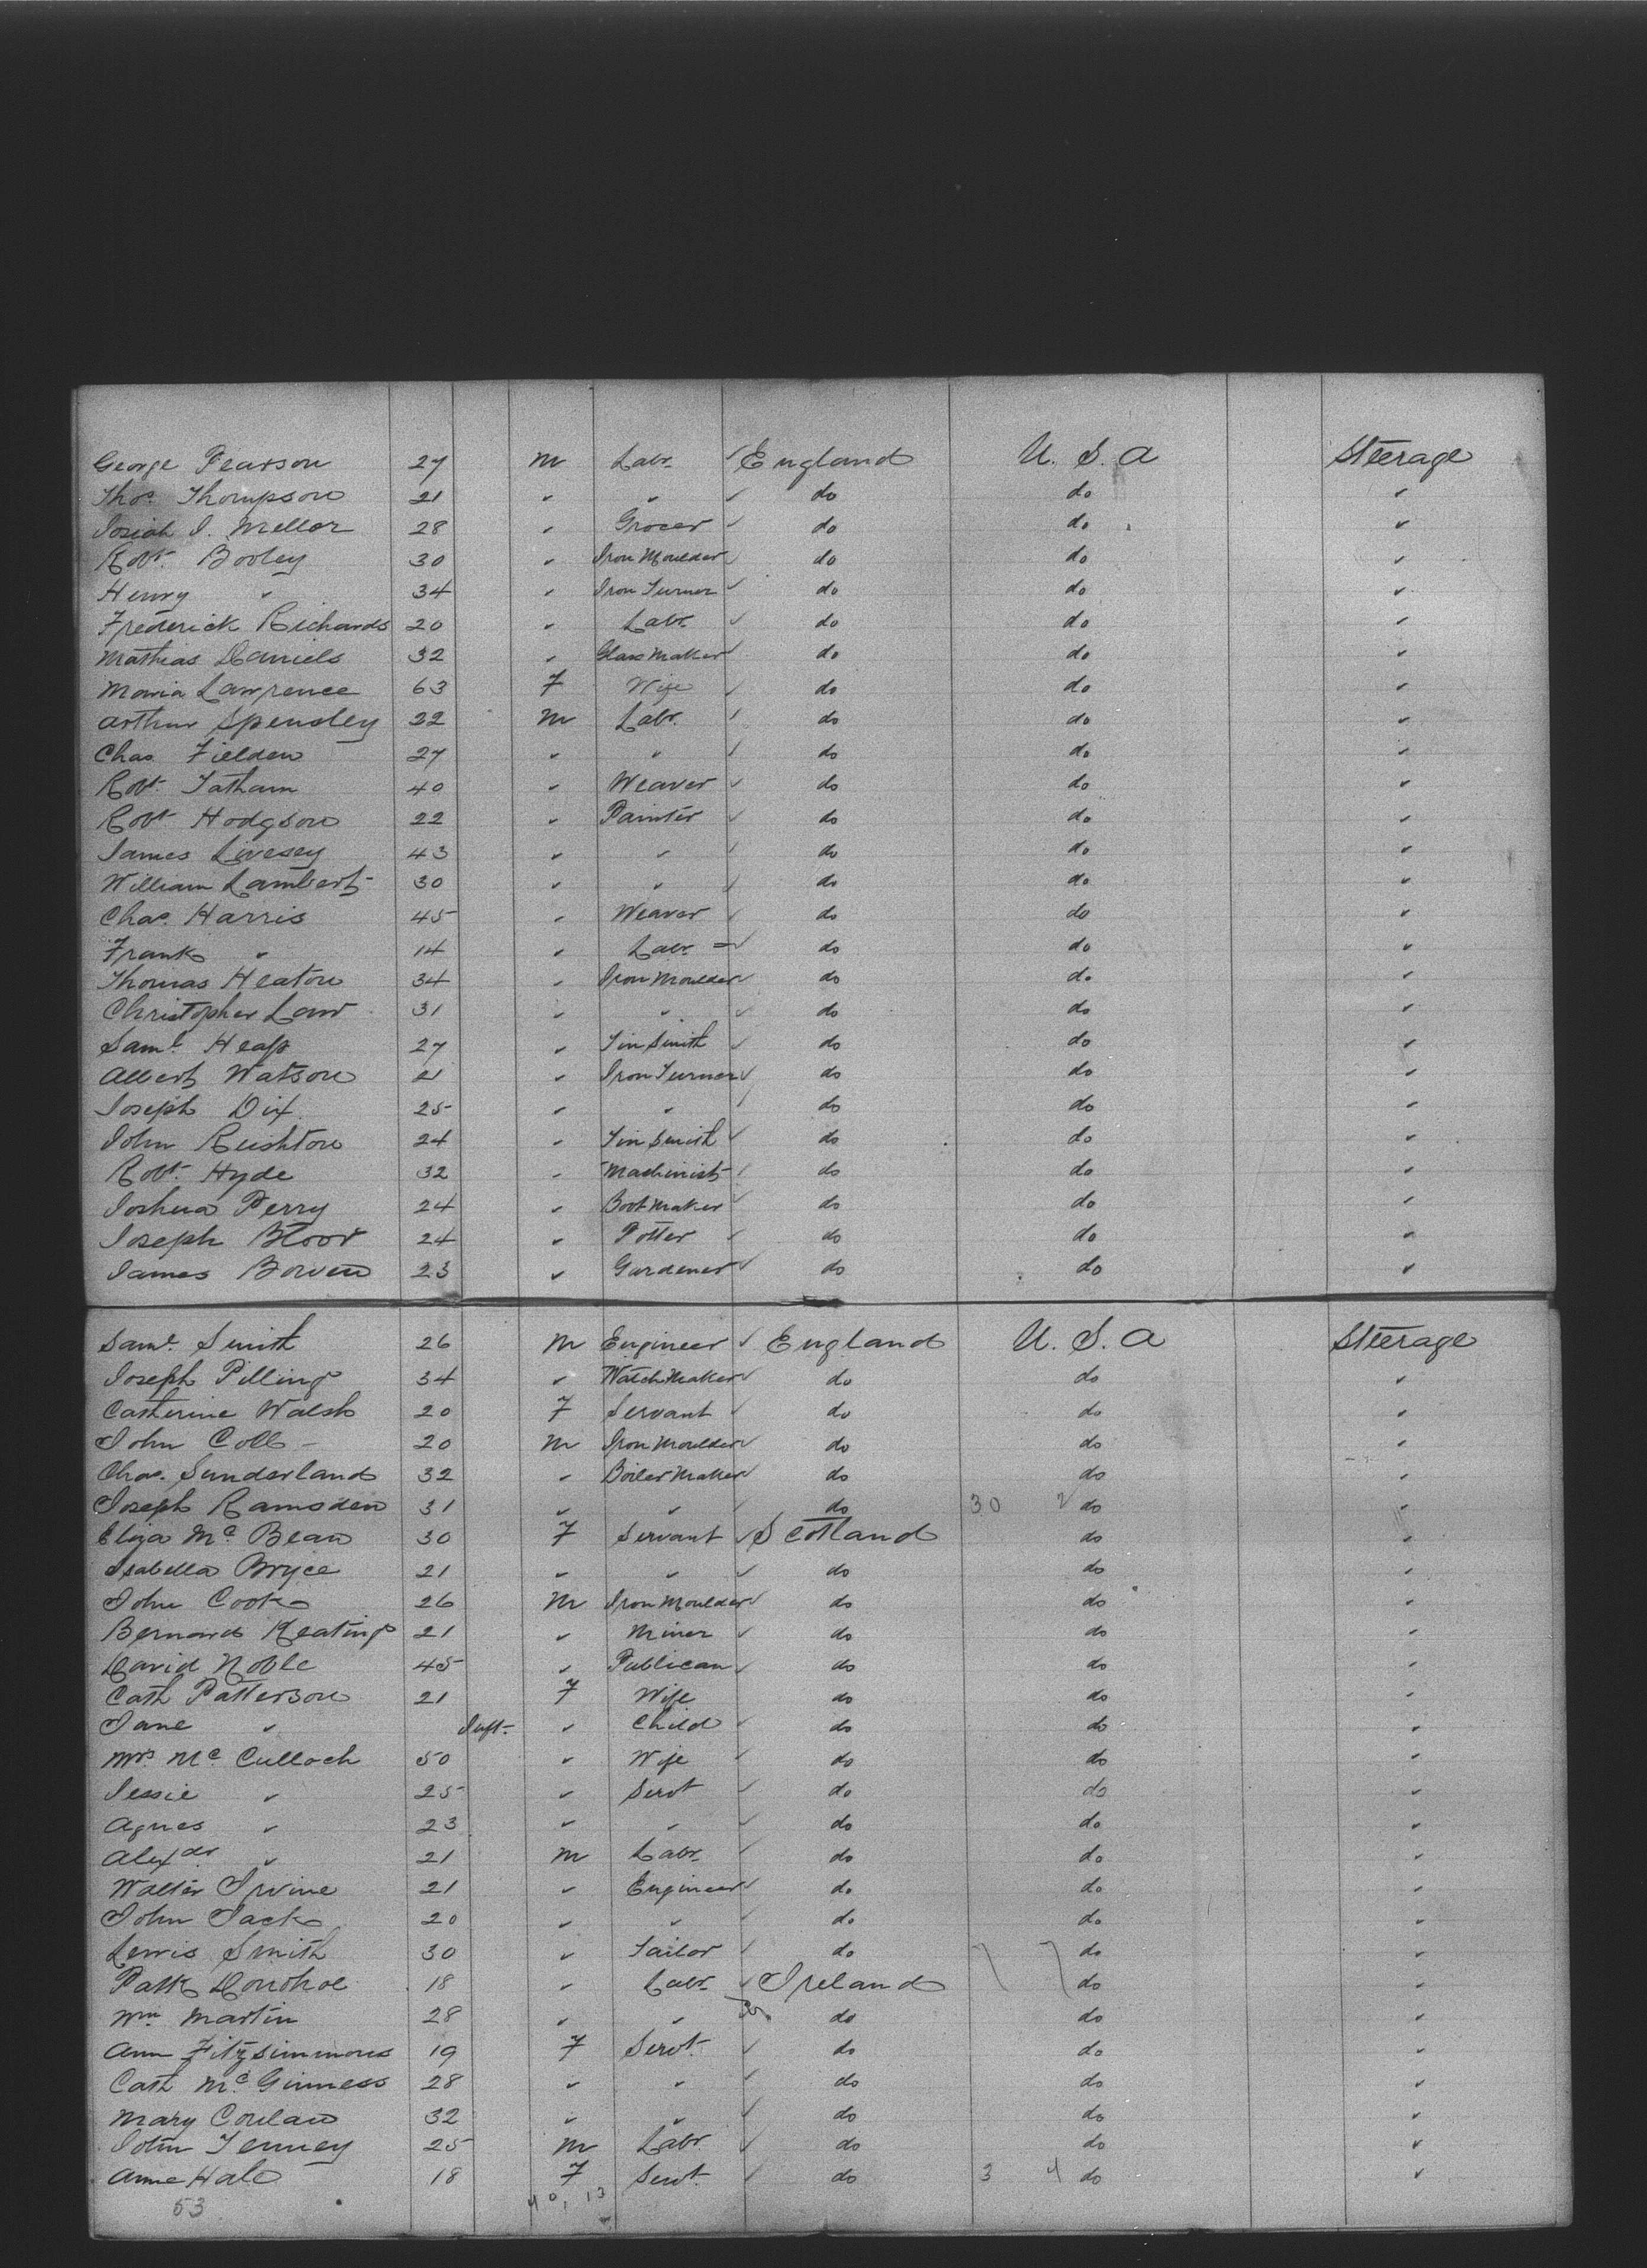 George Pearson 27 M Labr. England U. S. A Steerage
Thos. Thompson 21 " " do do "
Josiah J. Mellor 28 " Grocer do do "
Robt. Booley 30 " Iron Moulder do do "
Henry " 34 " Iron Turner do do "
Frederick Richards 20 " Labr. do do "
Mathias Daniels 32 " Glass Maker do do "
Maria Lawrence 63 F Wife do do "
Arthur Spensley 22 M Labr. do do "
Chas. Fielden 27 " " do do "
Robt. Tatham 40 " Weaver do do "
Robt. Hodgson 22 " Painter do do "
James Livesey 43 " " do do "
William Lambert 30 " " do do "
Chas. Harris 45 " Weaver do do "
Frank " 14 " Labr. do do "
Thomas Heaton 34 " Iron Moulder do do "
Christopher Law 31 " " do do "
Saml. Heap 27 " Tin Smith do do "
Albert Watson 21 " Iron Turner do do "
Joseph Dix 25 " " do do "
John Rushton 24 " Tin Smith do do "
Robt. Hyde 32 " Machinist do do "
Joshua Perry 24 " Boot Maker do do "
Joseph Bloor 24 " Potter do do "
James Bowen 23 " Gardener do do "
Saml. Smith 26 M Engineer England U. S. A Steerage
Joseph Pilling 34 " Watch Maker do do "
Catherine Walsh 20 F Servant do do "
John Coll 20 M Iron Moulder do do "
Chas. Sunderland 32 " Boiler Maker do do "
Joseph Ramsden 31 " " do 30 2 do "
Eliza Mc Bean 30 F Servant Scotland do "
Isabella Bryce 21 " " do do "
John Cook 26 M Iron Moulder do do "
Bernard Keating 21 " Miner do do "
David Noble 45 " Publican do do "
Cath Patterson 21 F Wife do do "
Jane " Inft. " Child do do "
Mrs. Mc Culloch 50 " Wife do do "
Jessie " 25 " Servt do do "
Agnes " 23 " " do do "
Alexdr " 21 M Labr. do do "
Walter Irvine 21 " Engineer do do "
John Jack 20 " " do do "
Lewis Smith 30 " Tailor do do "
Patk Donohoe 18 " Labr. Ireland do "
Wm. Martin 28 " " do do "
Ann Fitzsimmons 19 F Servt. do do "
Cath Mc Ginness 28 " " do do "
Mary Conlan 32 " " do do "
John Tenney 25 M Labr. do do "
Anne Hale 18 F Servt. do 3 4 do "
53 40, 13